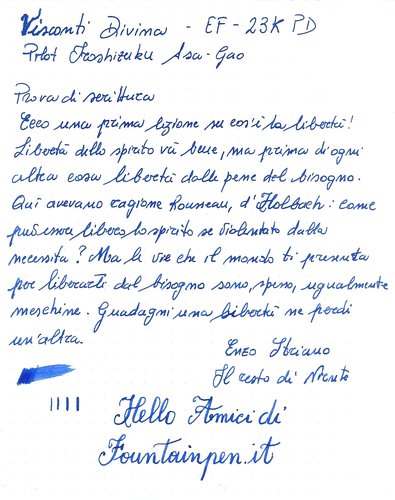 Visconti Divina - EF - 23K PD
Pilot Iroshizuku Asa-Gao
Prova di scrittura
Ecco una prima lezione su cos'è la libertà!
Libertà dello spirito và bene, ma prima di ogni
altra cosa libertà dalle pene del bisogno.
Qui avevano ragione Rousseau, d'Holbach: come
può esser libero lo spirito se violentato dalla
necessità? Ma le vie che il mondo ti presenta
per liberarti dal bisogno sono, spesso, ugualmente
meschine. Guadagni una libertà ne perdi
un'altra.
Enzo Striano
Il resto di Niente
Hello Amici di
Fountainpen.it